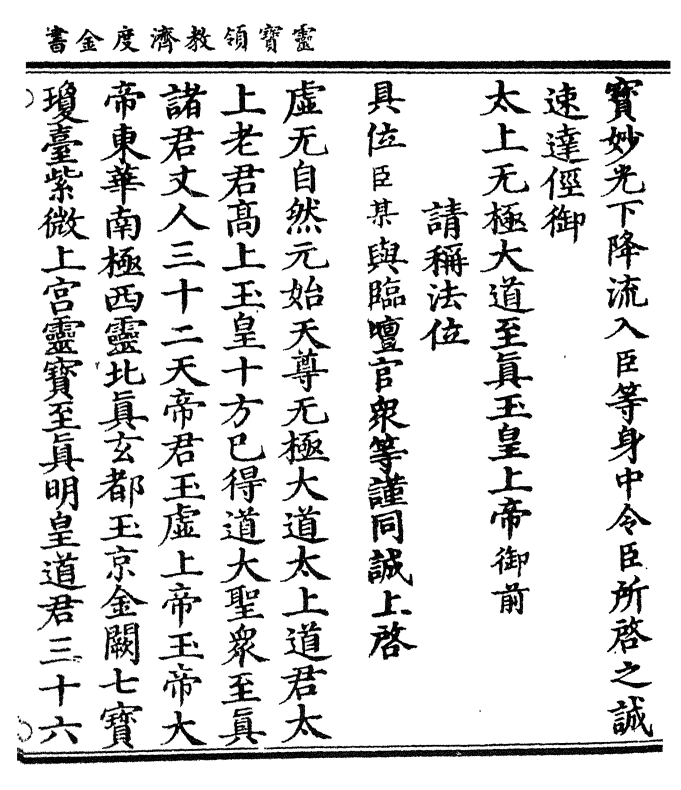 靈寶領教濟度金書
寶妙光下降流入臣等身中令臣所啓之誠
速達徑御
太上无極大道至眞玉皇上帝御前
請稱法位
具位臣某與臨壇官衆等謹同誠上啓
虛无自然元始天尊无極大道太上道君太
上老君高上玉皇十方已得道大聖衆至眞
諸君丈人三十二天帝君玉虛上帝玉帝大
帝東華南極西靈北眞玄都玉京金闕七寶
瓊臺紫微上宮靈寶至眞明皇道君三十六